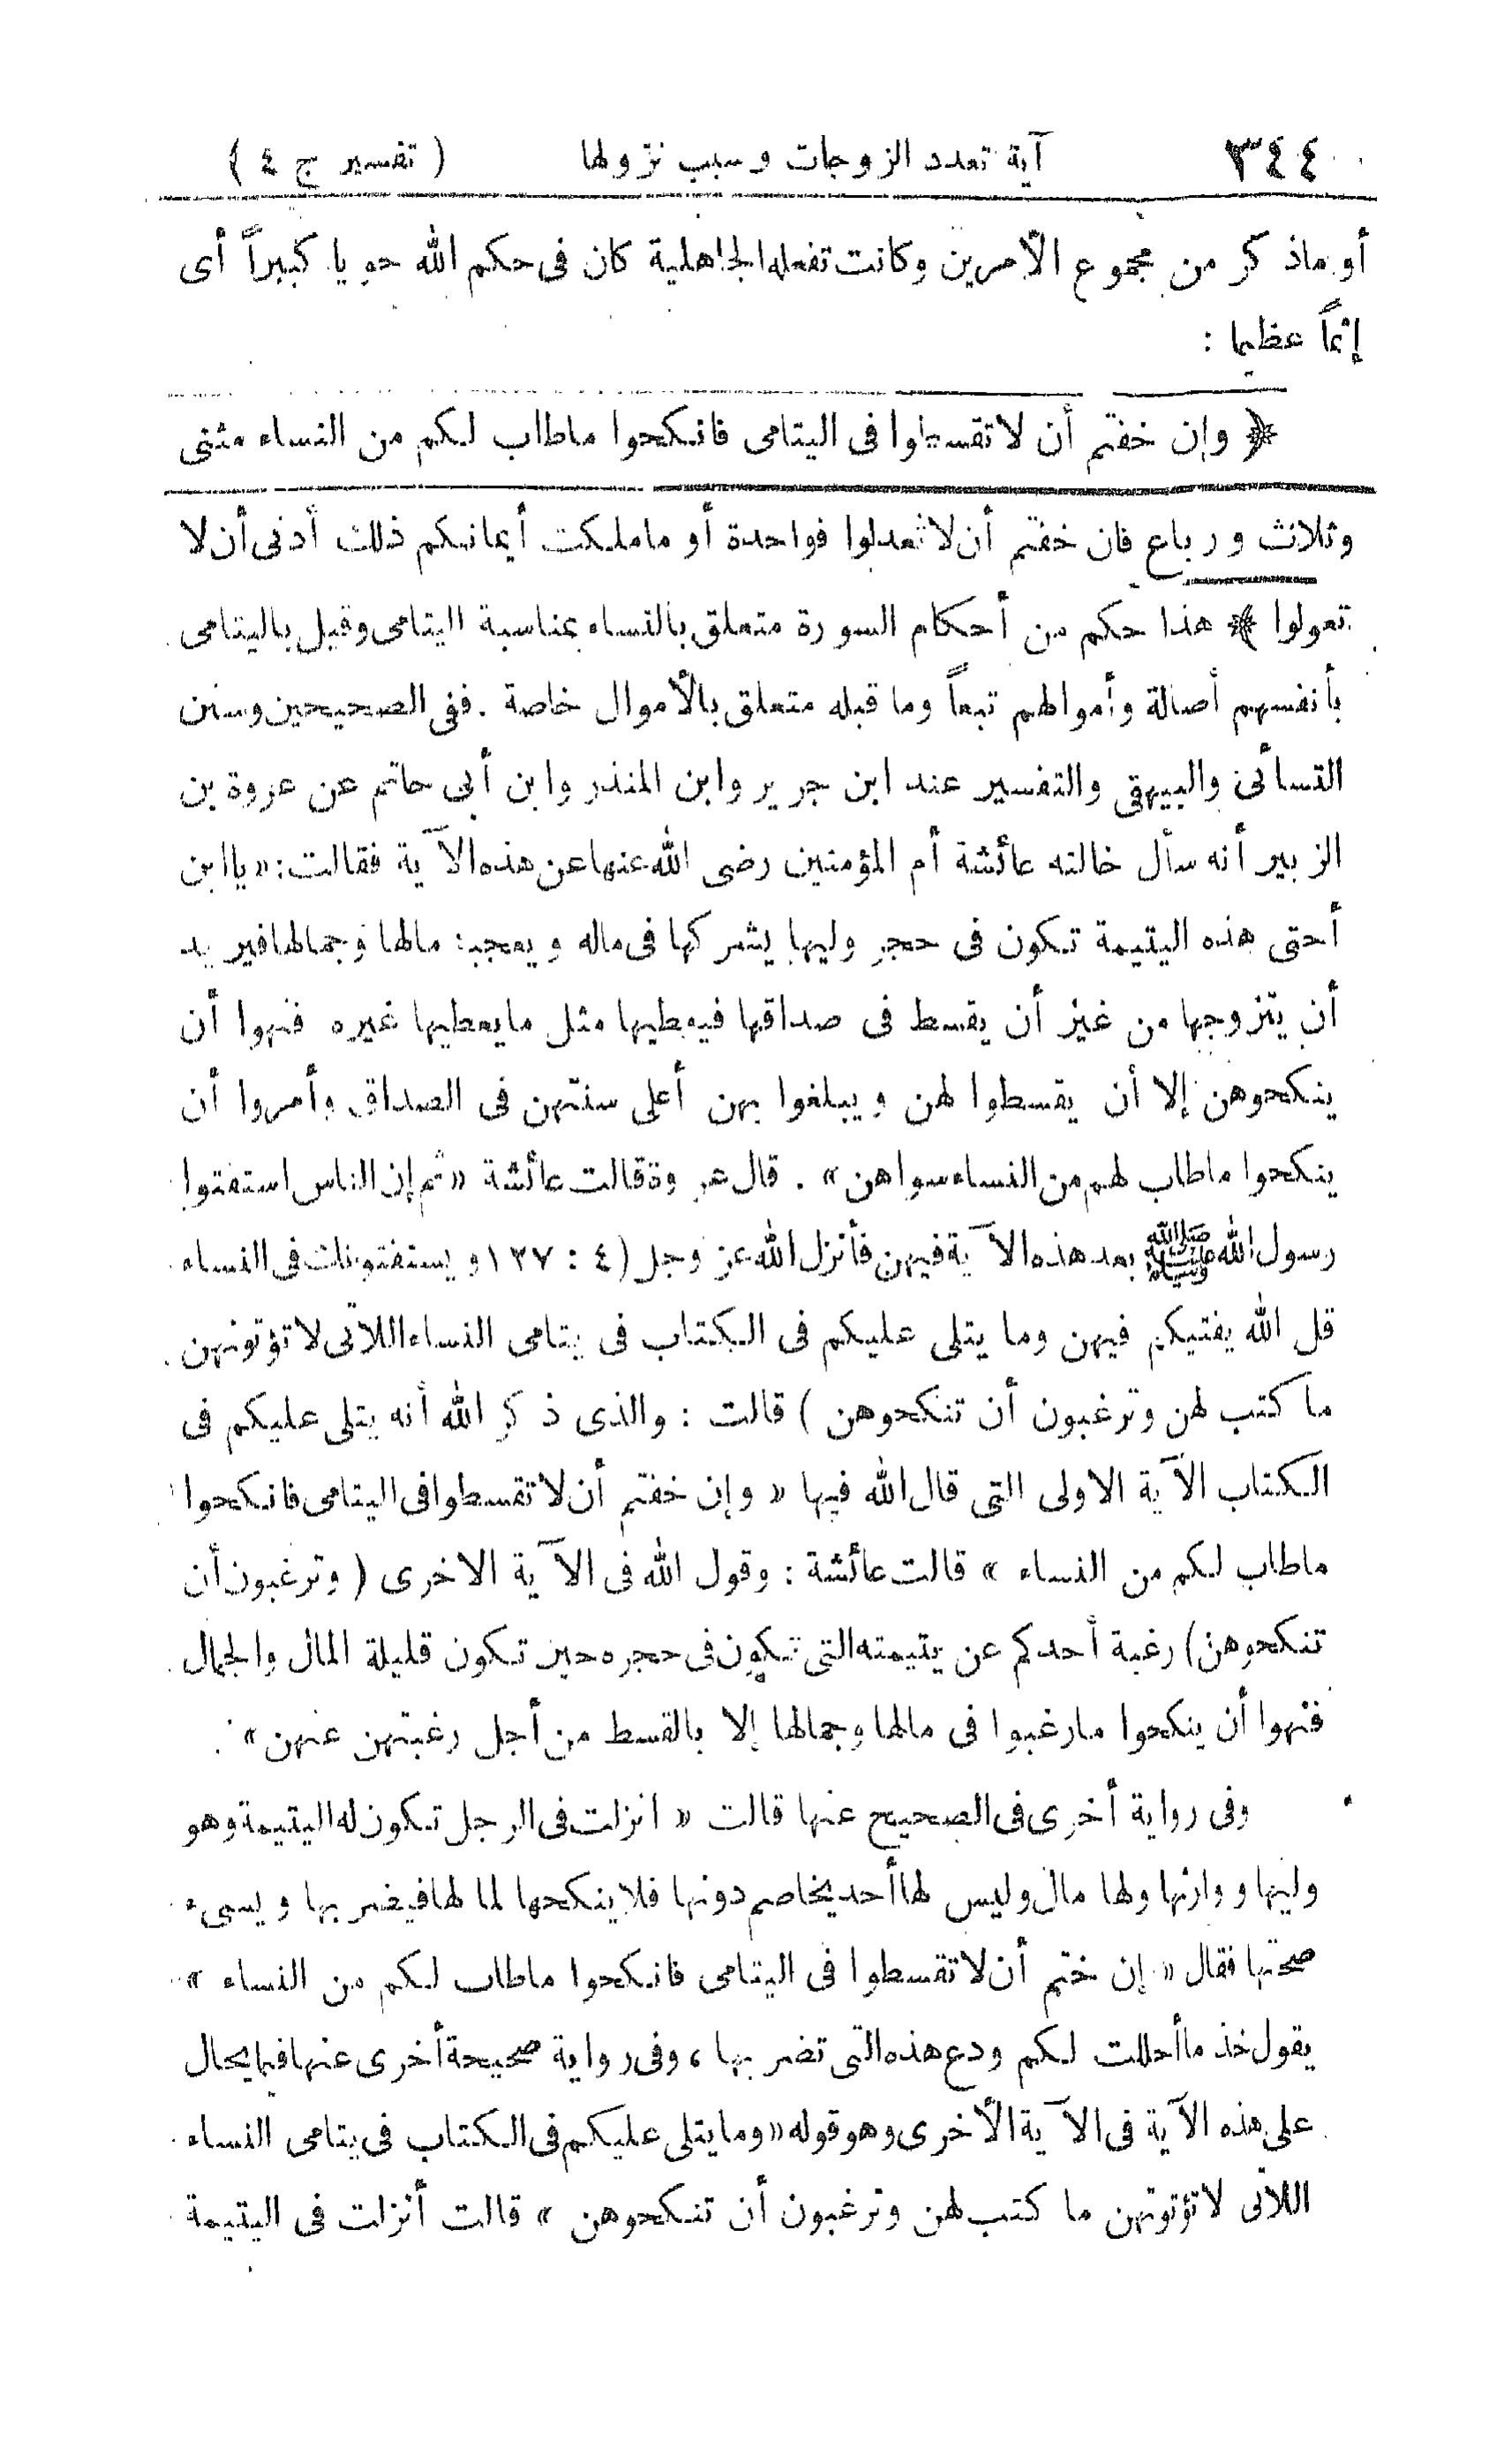 ٣٤٤ آية تعدد الزوجات وسبب نزولها ( تفسير ج ٤ )
أو ماذكر من مجموع الأمرين وكانت تفعله الجاهلية كان فى حكم الله حوبا كبيراً أى
إثماً عظيما :
﴿ وإن خفتم أن لا تقسطوا فى اليتامى فانكحوا ماطاب لكم من النساء مثنى
وثلاث ورباع فان خفتم أن لا تعدلوا فواحدة أو ماملكت أيمانكم ذلك أدنى أن لا
تعولوا ﴾ هذا حكم من أحكام السورة متعلق بالنساء بمناسبة اليتامى وقيل باليتامى
بأنفسهم أصالة وأموالهم تبعاً وما قبله متعلق بالأموال خاصة . ففى الصحيحين وسنن
النسائى والبيهقى والتفسير عند ابن جرير وابن المنذر وابن أبى حاتم عن عروة بن
الزبير أنه سأل خالته عائشة أم المؤمنين رضى الله عنها عن هذه الآية فقالت : « يا ابن
أختى هذه اليتيمة تكون فى حجر وليها يشركها فى ماله ويعجبه مالها وجمالها فيريد
أن يتزوجها من غير أن يقسط فى صداقها فيعطيها مثل مايعطيها غيره فنهوا أن
ينكحوهن إلا أن يقسطوا لهن ويبلغوا بهن أعلى سنتهن فى الصداق وأمروا أن
ينكحوا ماطاب لهم من النساء سواهن » . قال عروة قالت عائشة « ثم إن الناس استفتوا
رسول الله ﷺ بعد هذه الآية فيهن فأنزل الله عز وجل ( ٤ : ١٢٧ ويستفتونك فى النساء
قل الله يفتيكم فيهن وما يتلى عليكم فى الكتاب فى يتامى النساء اللاتى لا تؤتونهن
ما كتب لهن وترغبون أن تنكحوهن ) قالت : والذى ذكر الله أنه يتلى عليكم فى
الكتاب الآية الاولى التى قال الله فيها « وإن خفتم أن لا تقسطوا فى اليتامى فانكحوا
ماطاب لكم من النساء » قالت عائشة : وقول الله فى الآية الاخرى ( وترغبون أن
تنكحوهن ) رغبة أحدكم عن يتيمته التى تكون فى حجره حين تكون قليلة المال والجمال
فنهوا أن ينكحوا مارغبوا فى مالها وجمالها إلا بالقسط من أجل رغبتهن عنهن » .
وفى رواية أخرى فى الصحيح عنها قالت « انزلت فى الرجل تكون له اليتيمة وهو
وليها ووارثها ولها مال وليس لها أحد يخاصم دونها فلا ينكحها لمالها فيضر بها ويسىء
صحبتها فقال « إن خفتم أن لا تقسطوا فى اليتامى فانكحوا ماطاب لكم من النساء »
يقول خذ ما أحللت لكم ودع هذه التى تضر بها ، وفى رواية صحيحة أخرى عنها فيما يحال
على هذه الآية فى الآية الأخرى وهو قوله « وما يتلى عليكم فى الكتاب فى يتامى النساء
اللاتى لا تؤتونهن ما كتب لهن وترغبون أن تنكحوهن » قالت أنزلت فى اليتيمة